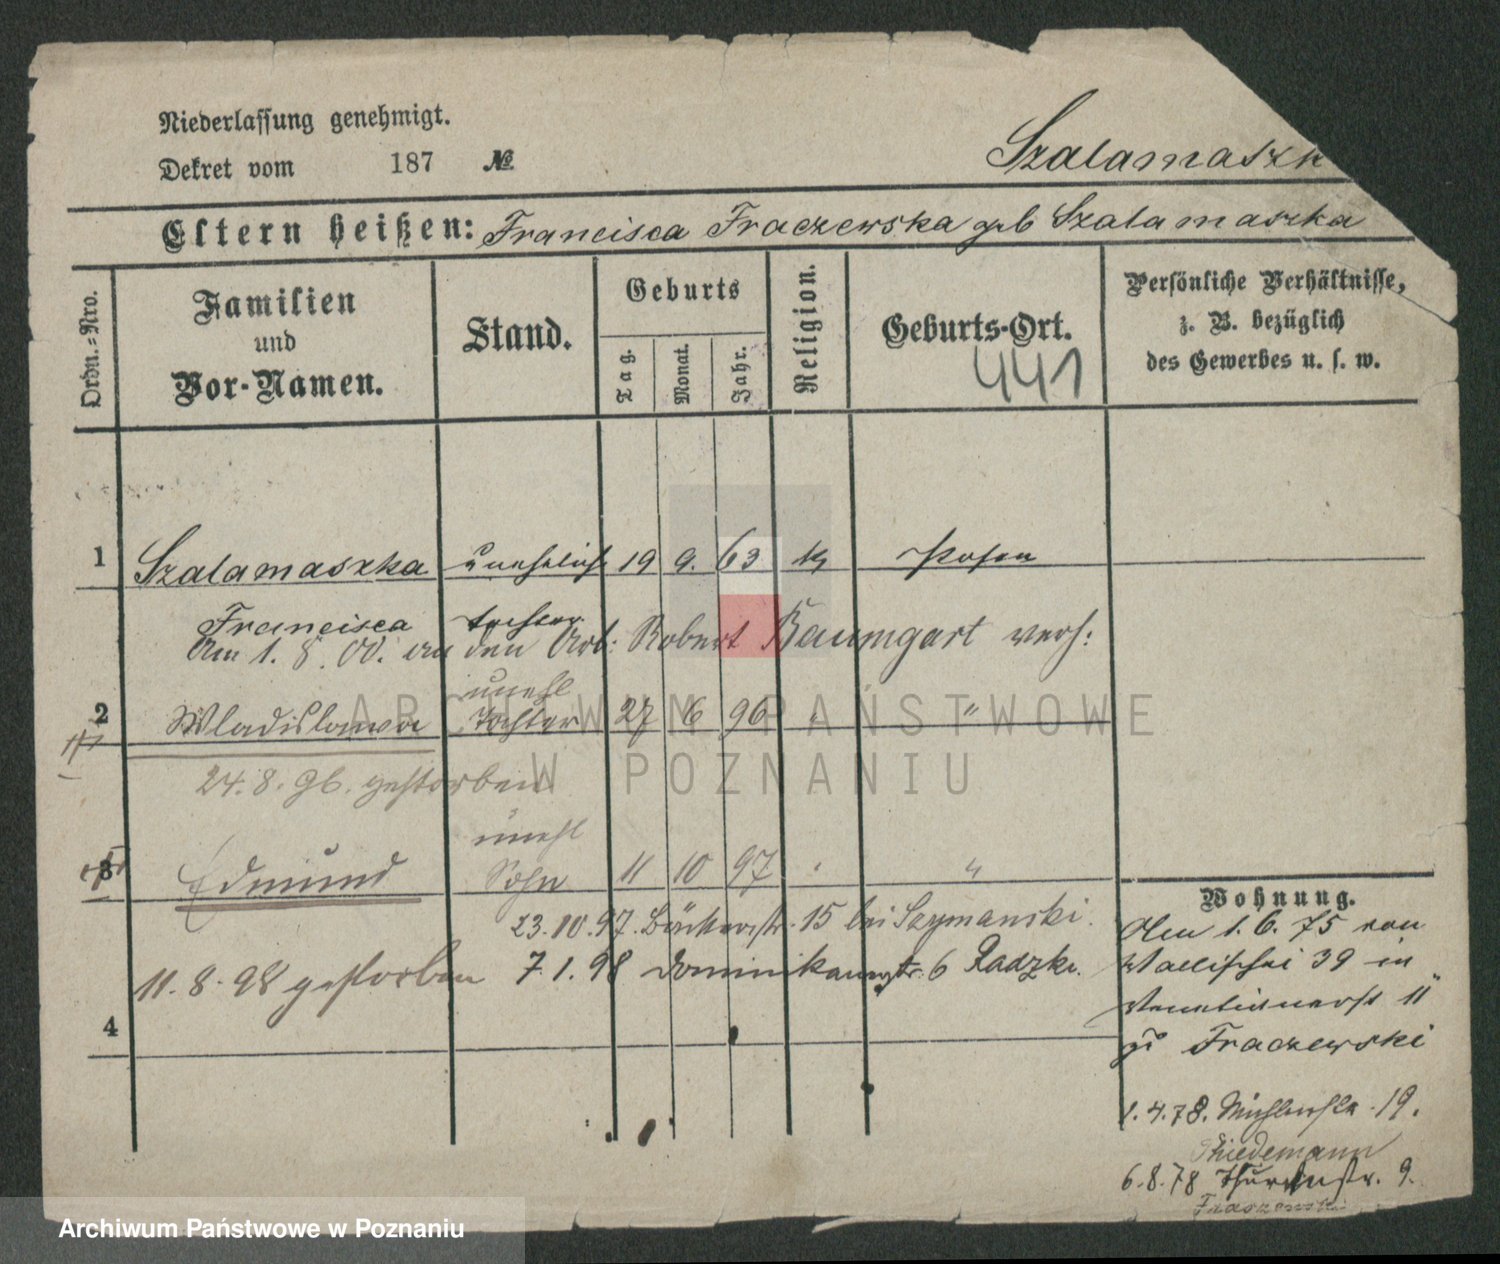 Niederlassung genehmigt.
Dekret vom 187 №
Szalamaszk
Eltern heißen: Francisca Fraczewska geb Szalamaszka
Ordn.-Nro.
Familien
und
Vor-Namen.
Stand.
Geburts
Tag.
Monat.
Jahr.
Religion.
Geburts-Ort.
441
Persönliche Verhältnisse,
z. B. bezüglich
des Gewerbes u. s. w.
1 Szalamaszka unehelich 19 9. 63 k Posen
Francisca tochter
Am 1. 8. 00. an den Arb: Robert Baumgart verh:
unehl
2 Wladislawa Tochter 27 6 96 " "
24. 8. 96. gestorben
unehl
3 Edmund Sohn 11 10 97 " "
23. 10. 97. Bäckerstr. 15 bei Szymanski.
11. 8. 98 gestorben 7. 1. 98 Dominikanerstr. 6 Radzki.
4
Wohnung.
Am 1. 6. 75 von
Wallischei 39 in
Venetianerst 11
zu Fraczewski
1. 4. 78. 19.
Thiedemann
6. 8. 78 Thurmstr. 9.
Fraczewski
ARCHIWUM PAŃSTWOWE
W POZNANIU
Archiwum Państwowe w Poznaniu